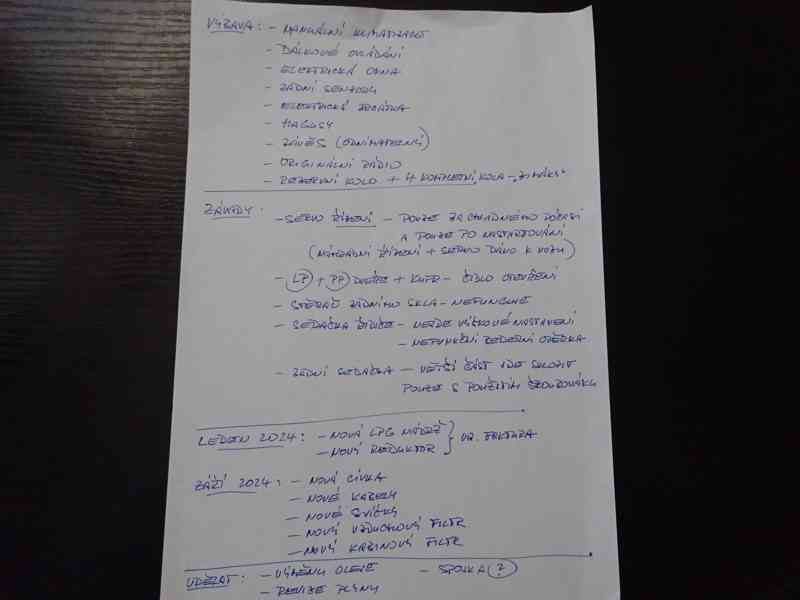 VÝBAVA: - MANUÁLNÍ KLIMATIZACE
- DÁLKOVÉ OVLÁDÁNÍ
- ELEKTRICKÁ OKNA
- ZADNÍ SENZORY
- ELEKTRICKÁ ZRCÁTKA
- HAGUSY
- ZÁVĚS (ODNÍMATELNÝ)
- ORIGINÁLNÍ RÁDIO
- REZERVNÍ KOLO + 4 KOMPLETNÍ KOLA - „ZIMÁKY"
ZÁVADY: - SERVO ŘÍZENÍ - POUZE ZA CHLADNÉHO POČASÍ
A POUZE PO NASTARTOVÁNÍ
(NÁHRADNÍ ŘÍZENÍ + SERVO DÁNO K VOZU)
- LP + PP DVEŘE + KUFR - ČIDLO OTEVŘENÍ
- STĚRAČ ZADNÍHO SKLA - NEFUNGUJE
- SEDAČKA ŘIDIČE - NEJDE VÝŠKOVÉ NASTAVENÍ
- NEFUNKČNÍ BEDERNÍ OPĚRKA
- ZADNÍ SEDAČKA - VĚTŠÍ ČÁST JDE SKLOPIT
POUZE S POUŽITÍM ŠROUBOVÁKU
LEDEN 2024: - NOVÁ LPG NÁDRŽ
- NOVÝ REDUKTOR } VIZ. FAKTURA
ZÁŘÍ 2024: - NOVÁ CÍVKA
- NOVÉ KABELY
- NOVÉ SVÍČKY
- NOVÝ VZDUCHOVÝ FILTR
- NOVÝ KABINOVÝ FILTR
UDĚLAT: - VÝMĚNU OLEJE - SPOJKA (?)
- REVIZE PLYNU